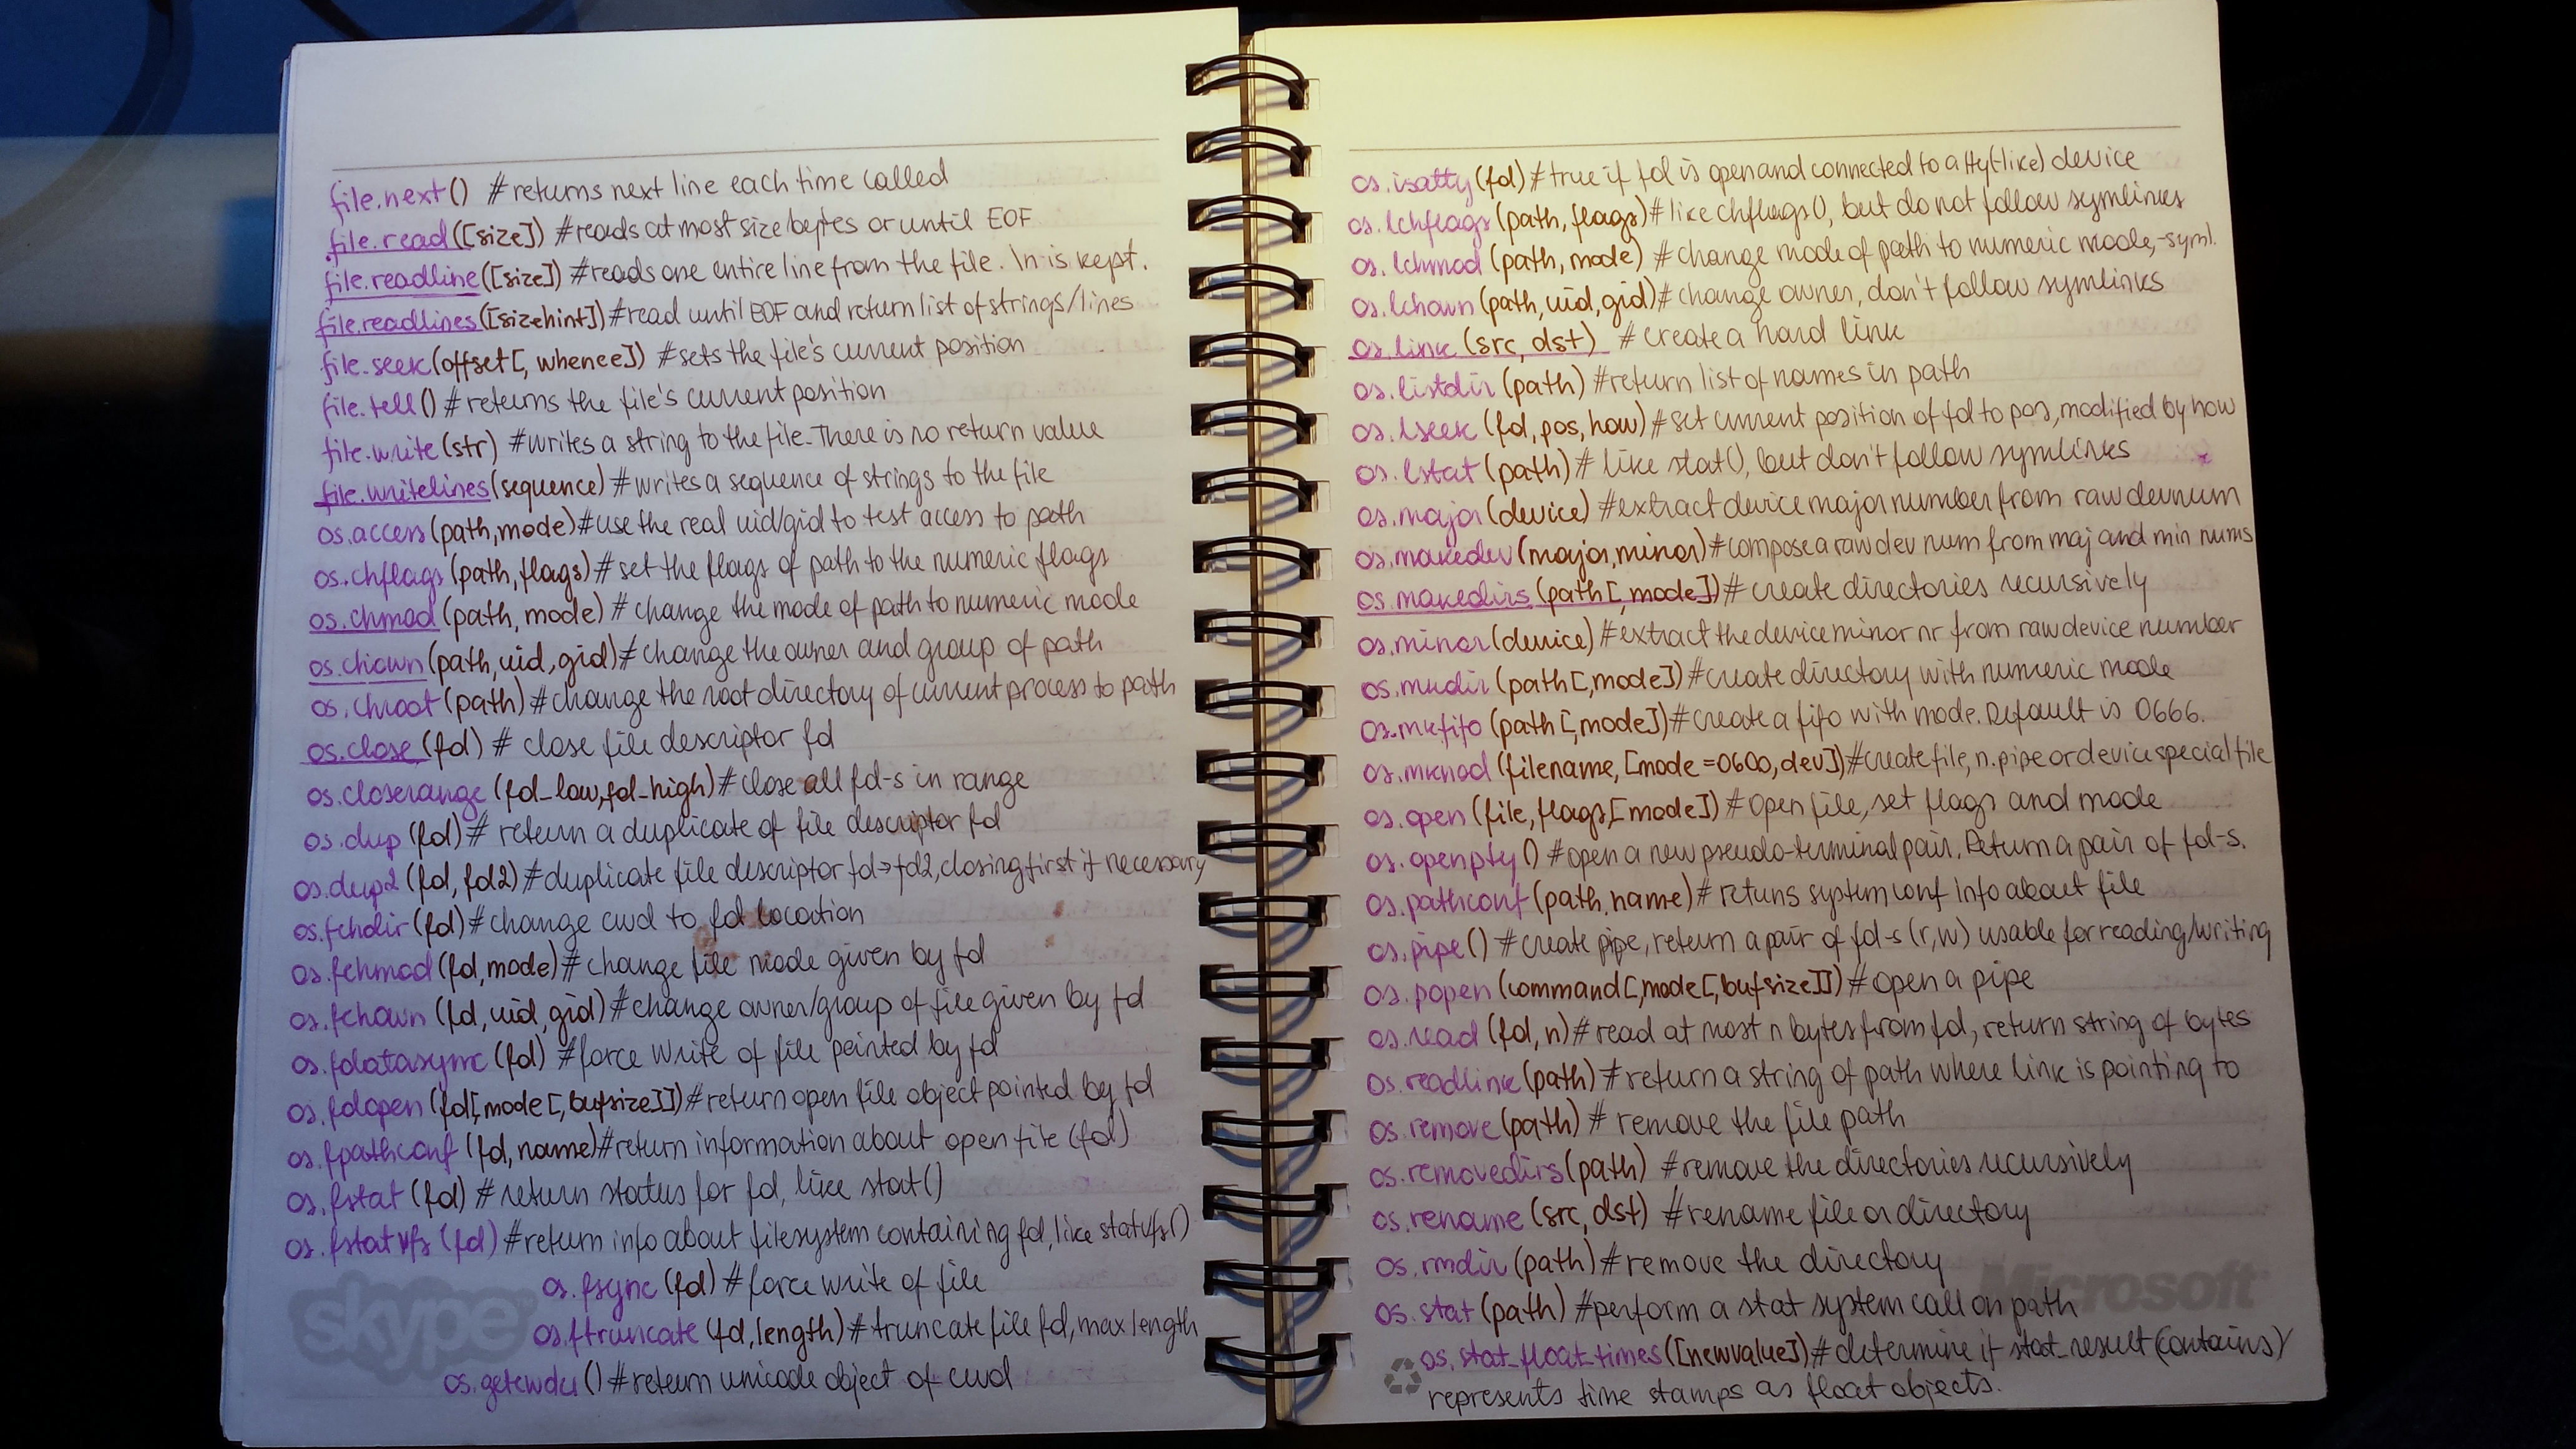 file.next() #returns next line each time called
file.read([size]) #reads at most size bytes or until EOF
file.readline([size]) #reads one entire line from the file. \n is kept.
file.readlines([sizehint]) #read until EOF and return list of strings/lines
file.seek(offset[, whence]) #sets the file's current position
file.tell() #returns the file's current position
file.write(str) #writes a string to the file. There is no return value
file.writelines(sequence) #writes a sequence of strings to the file
os.access(path,mode) #use the real uid/gid to test access to path
os.chflags(path,flags) #set the flags of path to the numeric flags
os.chmod(path, mode) #change the mode of path to numeric mode
os.chown(path,uid,gid) #change the owner and group of path
os.chroot(path) #change the root directory of current process to path
os.close(fd) # close file descriptor fd
os.closerange (fd_low,fd_high) #close all fd-s in range
os.dup(fd) # return a duplicate of file descriptor fd
os.dup2 (fd, fd2) #duplicate file descriptor fd→fd2, closing first if necessary
os.fchdir(fd) #change cwd to fd location
os.fchmod(fd,mode) #change file mode given by fd
os.fchown (fd, uid, gid) #change owner/group of file given by fd
os.fdatasync (fd) #force write of file pointed by fd
os.fdopen (fd[,mode[,bufsize]]) #return open file object pointed by fd
os.fpathconf (fd, name) #return information about open file (fd)
os.fstat (fd) #return status for fd, like stat()
os.fstatvfs (fd) #return info about filesystem containing fd, like statvfs()
os.fsync (fd) #force write of file
os.ftruncate (fd,length) #truncate file fd, max length
os.getcwdu() #return unicode object of cwd
skype
os.isatty(fd) #true if fd is open and connected to a tty(-like) device
os.lchflags (path, flags) #like chflags(), but do not follow symlinks
os.lchmod (path, mode) #change mode of path to numeric mode, -syml.
os.lchown (path, uid, gid) #change owner, don't follow symlinks
os.link (src, dst) #create a hard link
os.listdir (path) #return list of names in path
os.lseek (fd, pos, how) #set current position of fd to pos, modified by how
os.lstat (path) # like stat(), but don't follow symlinks
os.major (device) #extract device major number from raw devnum
os.makedev (major,minor) #compose a raw dev num from maj and min nums
os.makedirs (path[,mode]) #create directories recursively
os.minor (device) #extract the device minor nr from raw device number
os.mkdir (path[,mode]) #create directory with numeric mode
os.mkfifo (path[,mode]) #create a fifo with mode. Default is 0666.
os.mknod (filename, [mode=0600, dev]) #create file, n.pipe or device special file
os.open (file, flags,[mode]) #open file, set flags and mode
os.openpty () #open a new pseudo-terminal pair. Return a pair of fd-s.
os.pathconf (path, name) #retuns system conf info about file
os.pipe () #create pipe, return a pair of fd-s (r,w) usable for reading/writing
os.popen (command[,mode[,bufsize]]) #open a pipe
os.read (fd, n) #read at most n bytes from fd, return string of bytes
os.readlink (path) #return a string of path where link is pointing to
os.remove (path) # remove the file path
os.removedirs (path) #remove the directories recursively
os.rename (src, dst) #rename file or directory
os.rmdir (path) #remove the directory
os.stat (path) #perform a stat system call on path
Microsoft
os.stat_float_times ([newvalue]) #determine if stat_result (contains)/
represents time stamps as float objects.